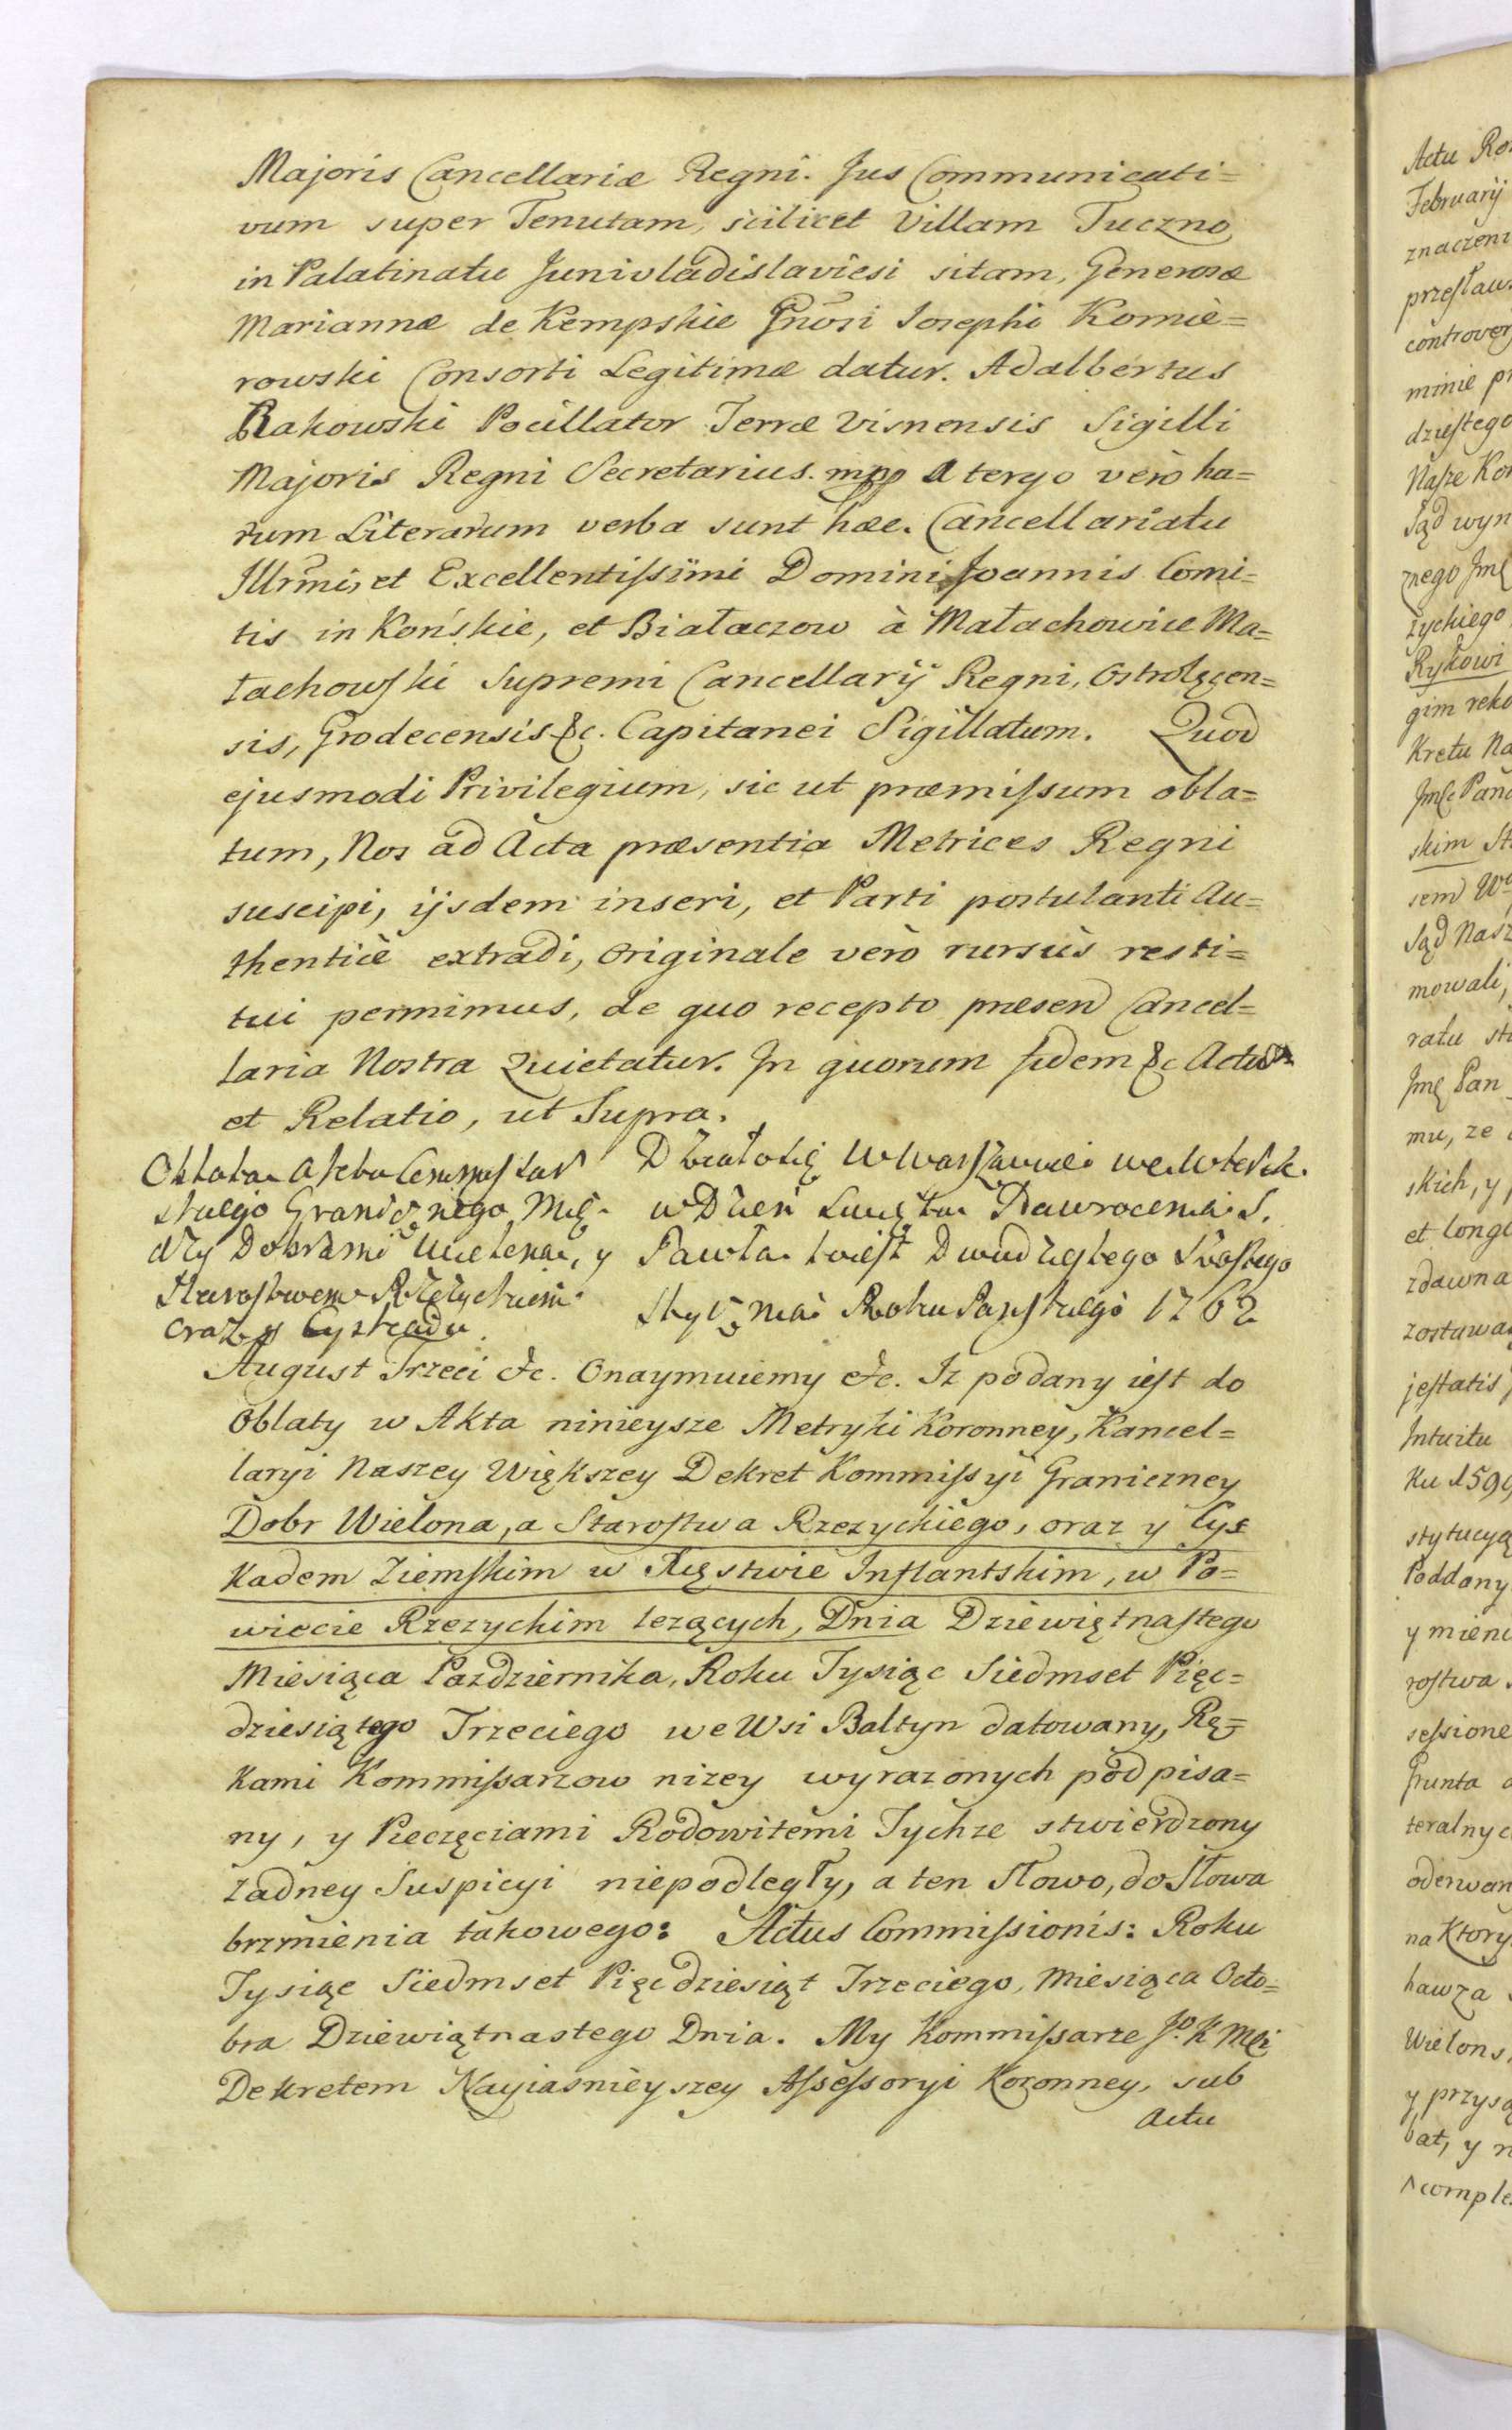 Majoris Cancellariæ Regni. Jus Communicati=
vum super Tenutam, scilicet Villam Tuczno
in Palatinatu Junivladislaviesi sitam, Generosæ
Mariannæ de Kempskie Gnosi Josephi Komie=
rowski Consorti Legitimæ datur. Adalbertus
Rakowski Pocillator Terræ Visnensis Sigilli
Majoris Regni Secretarius. mpp A tergo verò ha=
rum Literarum verba sunt hæc. Cancellariatu
Illrmi, et Excellentissimi Domini Joannis Comi=
tis in Końskie, et Białaczow à Małachowice Ma=
łachowski Supremi Cancellarij Regni, Ostrołęcen=
sis, Grodecensis &c. Capitanei Sigillatum. Quod
ejusmodi Privilegium, sic ut præmissum obla=
tum, Nos ad Acta præsentia Metrices Regni
suscipi, ijsdem inseri, et Parti postulanti Au=
thenticè extradi, Originale verò rursùs resti=
tui permimus, de quo recepto præsend Cancel=
laria Nostra Quietatur. In quorum fidem &c Actum
et Relatio, ut Supra.
Oblata
Granicznego Mię=
dzy Dobrami Wielona, y
Starostwem Rzeżyckiem
oraz y Cyskadu
Działo się w Warszawie we Wtorek
w Dzień Święta Nawrocenia S.
Pawła to iest Dwudziestego Szostego
Stycznia Roku Pańskiego 1762
August Trzeci &c. Oznaymuiemy &c. Iz podany iest do
Oblaty w Akta ninieysze Metryki Koronney, Kancel=
laryi Naszey Większey Dekret Kommissyi Graniczney
Dobr Wielona, a Starostwa Rzezyckiego, oraz y Cys
kadem Ziemskim w Xięstwie Inflantskim, w Po=
wiecie Rzezyckim lezących, Dnia Dziewiętnastego
Miesiąca Pazdziernika, Roku Tysiąc Siedmset Pięc=
dziesiątego Trzeciego we Wsi Baltyn datowany, Rę=
kami Kommissarzow nizey wyrazonych podpisa=
ny, y Pieczęciami Rodowitemi Tychze stwierdzony
zadney Suspicyi niepodległy, a ten Słowo, do Słowa
brzmienia takowego: Actus Commissionis: Roku
Tysiąc Siedmset Pięcdziesiąt Trzeciego, Miesiąca Octo=
bra Dziewiątnastego Dnia. My Kommissarze Jo. K Mci
Dekretem Nayiasnieyszey Assessoryi Koronney, sub
Actu
Actu
February
controver
dziestego
Rykowi
mowali,
et long
zdawna
jestatis
Intuitu
Ku 1599
Poddany
Grunta